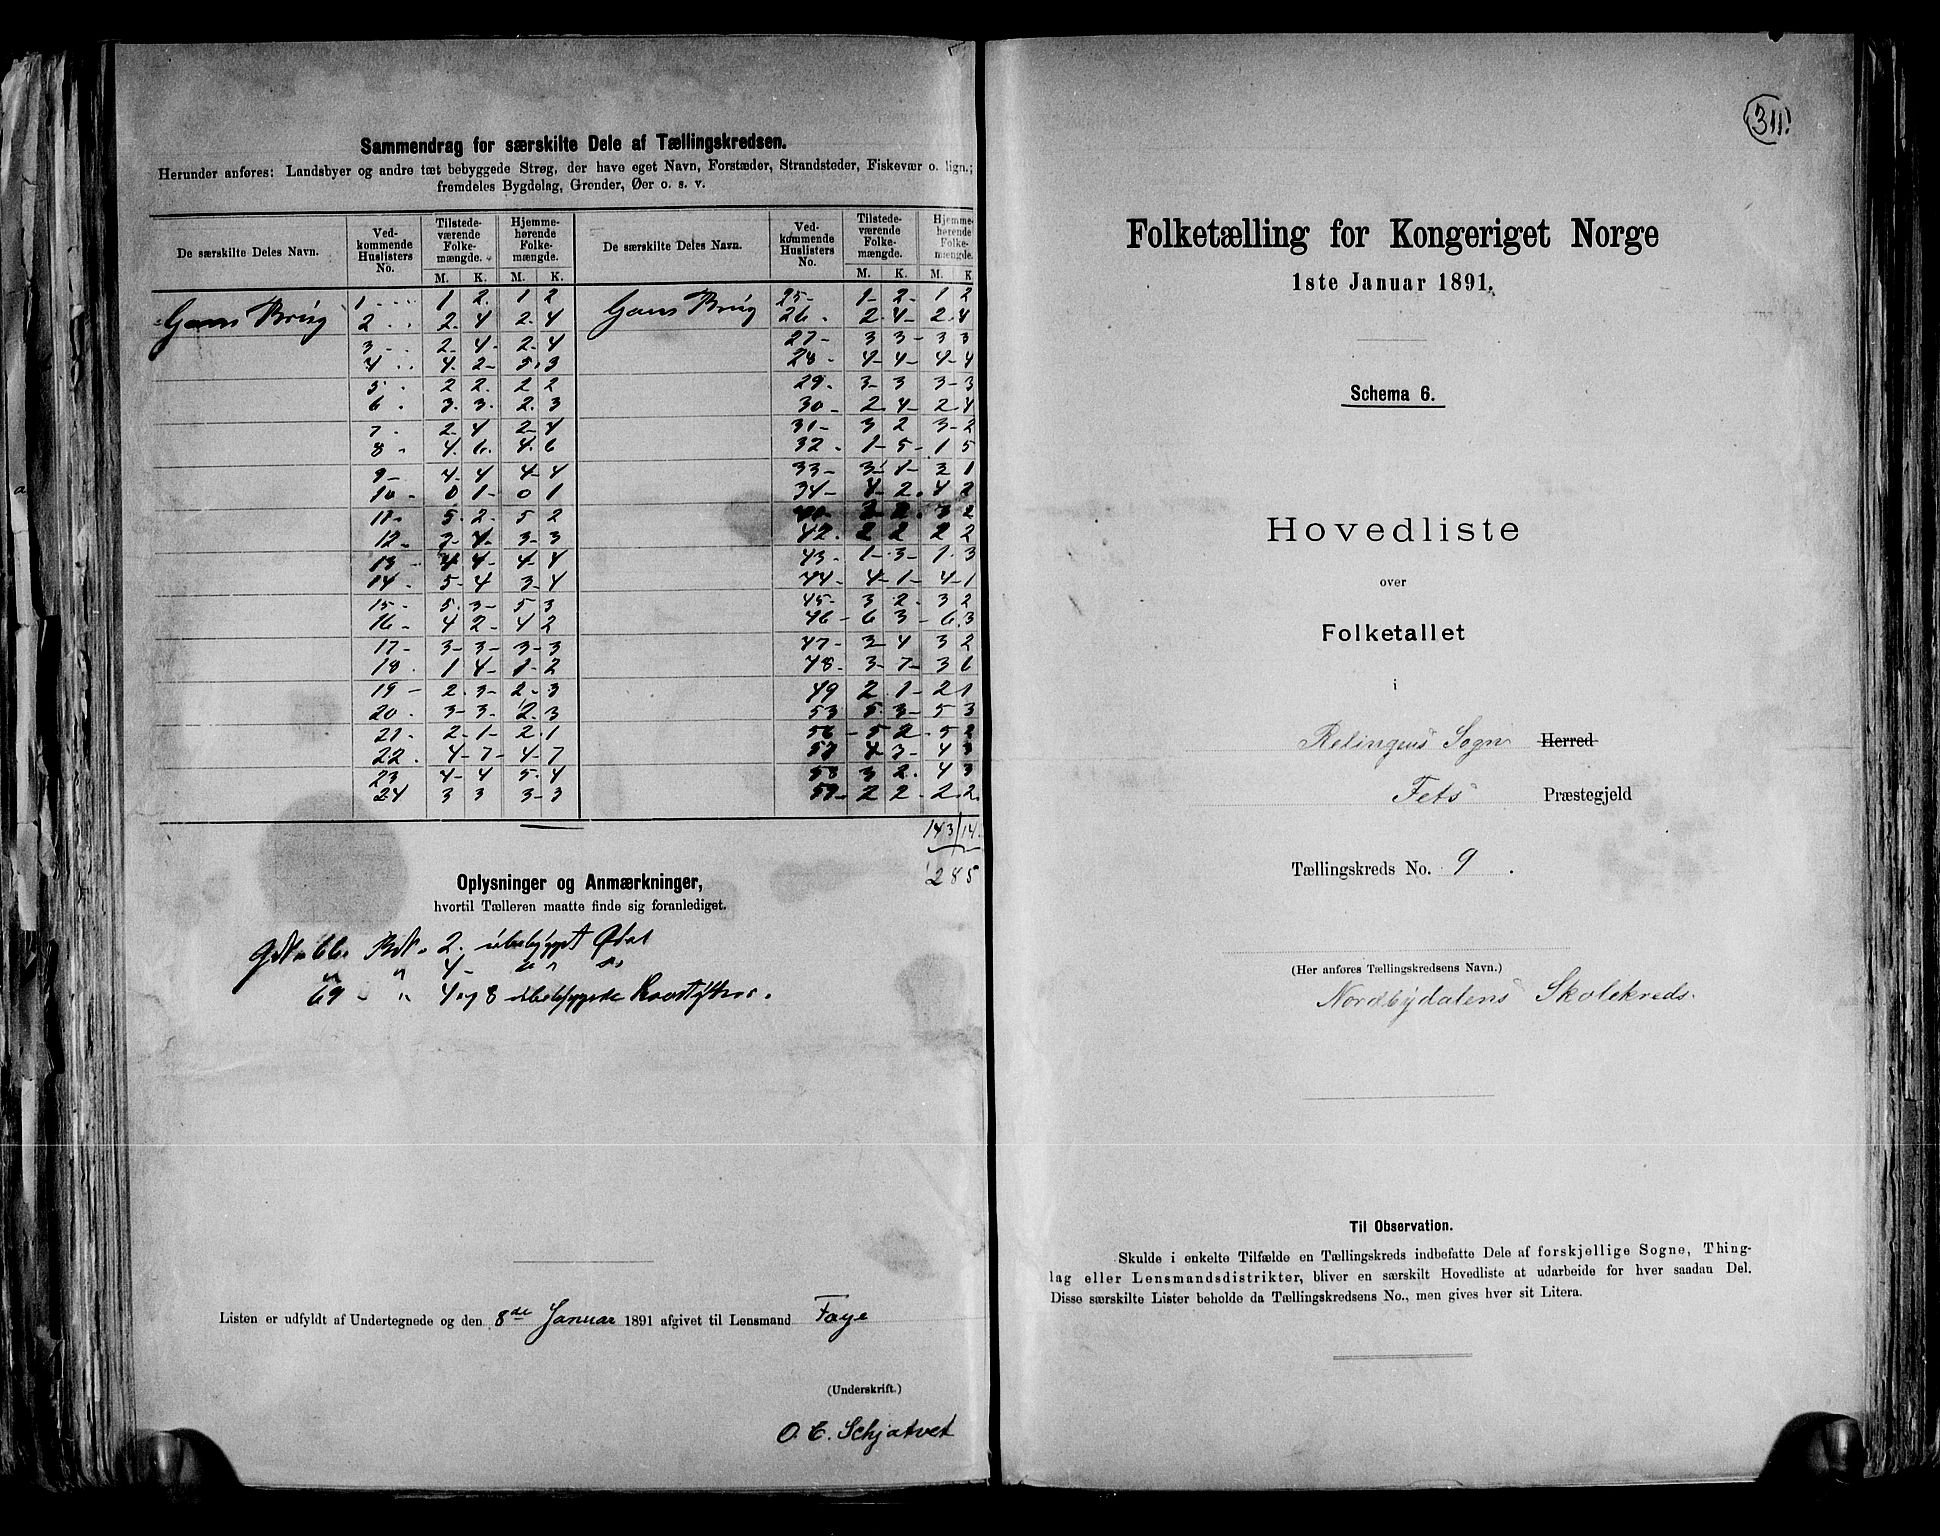 Sammendrag for særskilte Dele af Tællingskredsen.
Herunder anføres: Landsbyer og andre tæt bebyggede Strøg, der have eget Navn, Forstæder, Strandsteder, Fiskevær o. lign.;
fremdeles Bygdelag, Grender, Øer o. s. v.
De særskilte Deles Navn. Vedkommende Huslisters No. Tilstedeværende Folkemængde. M. K. Hjemmehørende Folkemængde. M. K.
De særskilte Deles Navn. Vedkommende Huslisters No. Tilstedeværende Folkemængde. M. K. Hjemmehørende Folkemængde. M. K
1 1 2 1 2
2 2 4 2 4
3 2 4 2 4
4 4 2 5 3
5 2 2 2 2
6 3 3 2 3
7 2 4 2 4
8 4 6 4 6
9 4 4 4 4
10 0 1 0 1
11 5 2 5 2
12 3 4 3 3
13 4 4 4 4
14 5 4 3 4
15 5 3 5 3
16 4 2 4 2
17 3 3 3 3
18 1 4 1 2
19 2 3 2 3
20 3 3 2 3
21 2 1 2 1
22 4 7 4 7
23 4 4 5 4
24 3 3 3 3
25 1 2 1 2
26 2 4 2 4
27 3 3 3 3
28 4 4 4 4
29 3 3 3 3
30 2 4 2 4
31 3 2 3 2
32 1 5 1 5
33 3 1 3 1
34 4 2 4 2
3 2 3 2
42 2 2 2 2
43 1 3 1 3
44 4 1 4 1
45 3 2 3 2
46 6 3 6 3
47 3 4 3 2
48 3 7 3 6
49 2 1 2 1
53 5 3 5 3
56 5 2 5 2
57 4 3 4 3
58 3 2 4 3
59 2 2 2 2
143/14
285
Oplysninger og Anmærkninger,
hvortil Tælleren maatte finde sig foranlediget.
66. 2. ubebygget
" " 4 " "
69 " " 4 og 8 ubebyggede
Listen er udfyldt af Undertegnede og den 8de Januar 1891 afgivet til Lensmand Faye
(Underskrift.)
O. E. Schjatvet
311
Folketælling for Kongeriget Norge
1ste Januar 1891.
Schema 6.
Hovedliste
over
Folketallet
i
Relingens Sogn Herred
Fets Præstegjeld
Tællingskreds No. 9.
(Her anføres Tællingskredsens Navn.)
Nordbydalens Skolekreds.
Til Observation.
Skulde i enkelte Tilfælde en Tællingskreds indbefatte Dele af forskjellige Sogne, Thing-
lag eller Lensmandsdistrikter, bliver en særskilt Hovedliste at udarbeide for hver saadan Del.
Disse særskilte Lister beholde da Tællingskredsens No., men gives hver sit Litera.